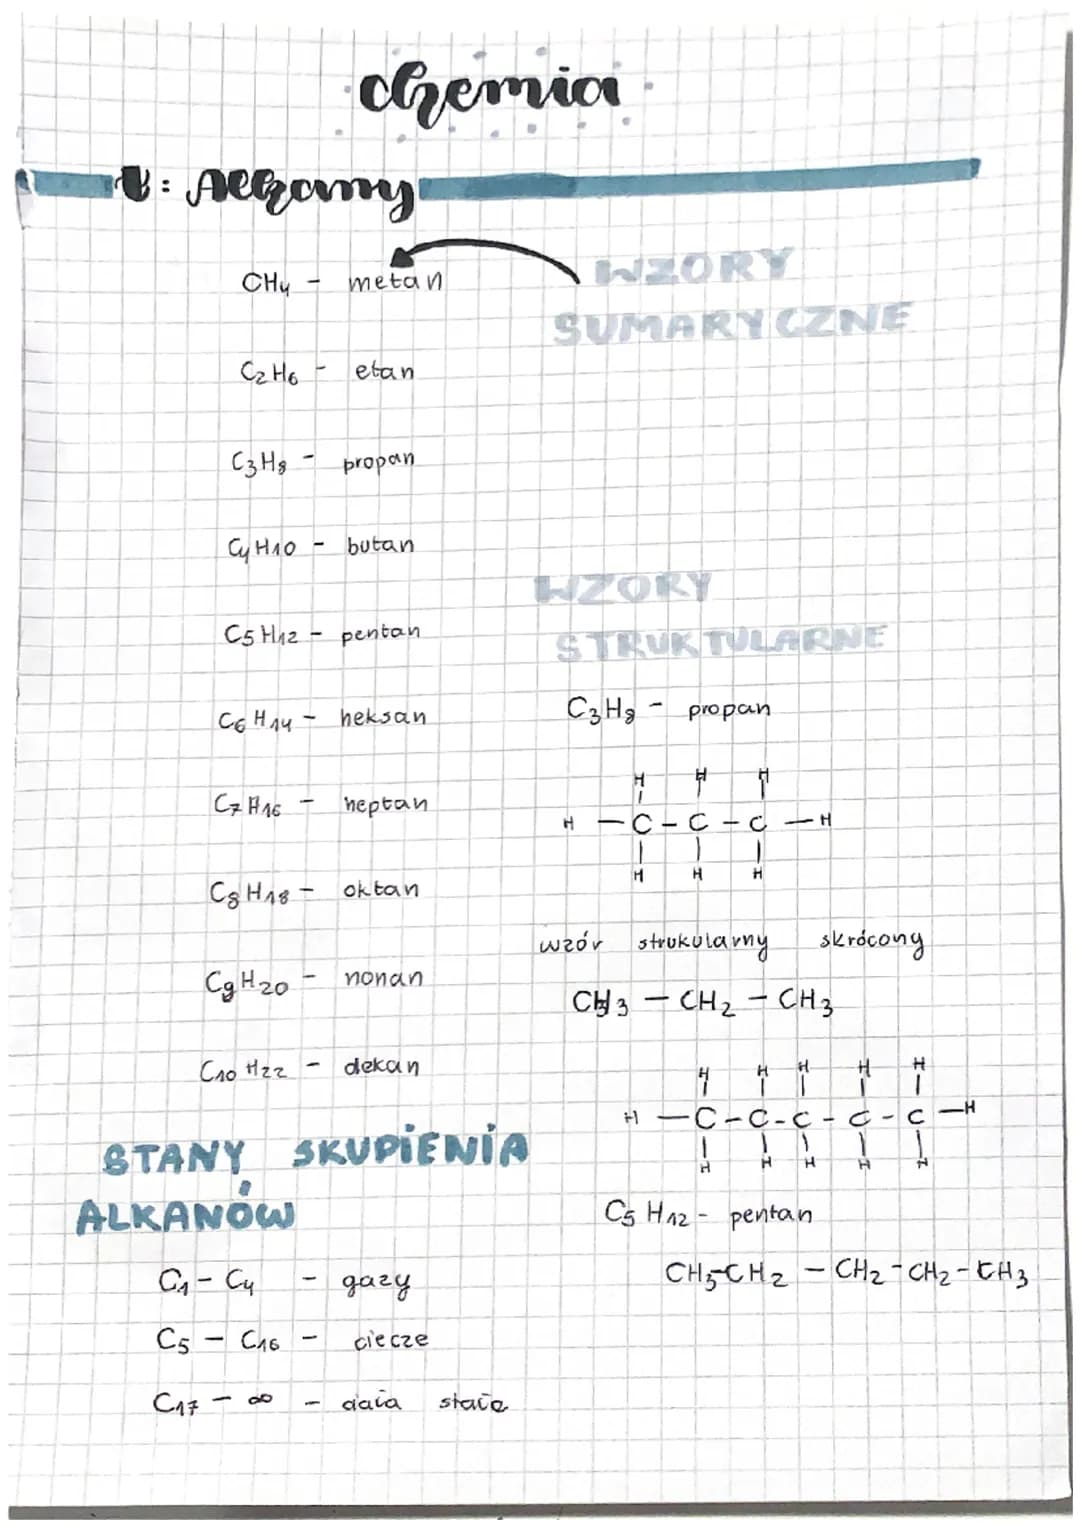 chemia
T: Alkany
CH4 - metan
WZORY
SUMARYCZNE
C2H6 - etan
C3H8 - propan
C4H10 - butan
C5H12 - pentan
C6H14 - heksan
C7H16 - heptan
C8H18 - oktan
C9H20 - nonan
C10H22 - dekan
WZORY
STRUKTULARNE
C3H8 - propan
H H H
H - C - C - C - H
H H H
wzór strukularny skrócony
CH3 - CH2 - CH3
H H H H H
H - C - C - C - C - C - H
H H H H H
C5H12 - pentan
CH3-CH2 - CH2-CH2-CH3
STANY SKUPIENIA
ALKANÓW
C1 - C4 - gazy
C5 - C16 - ciecze
C17 - ∞ - ciała stałe